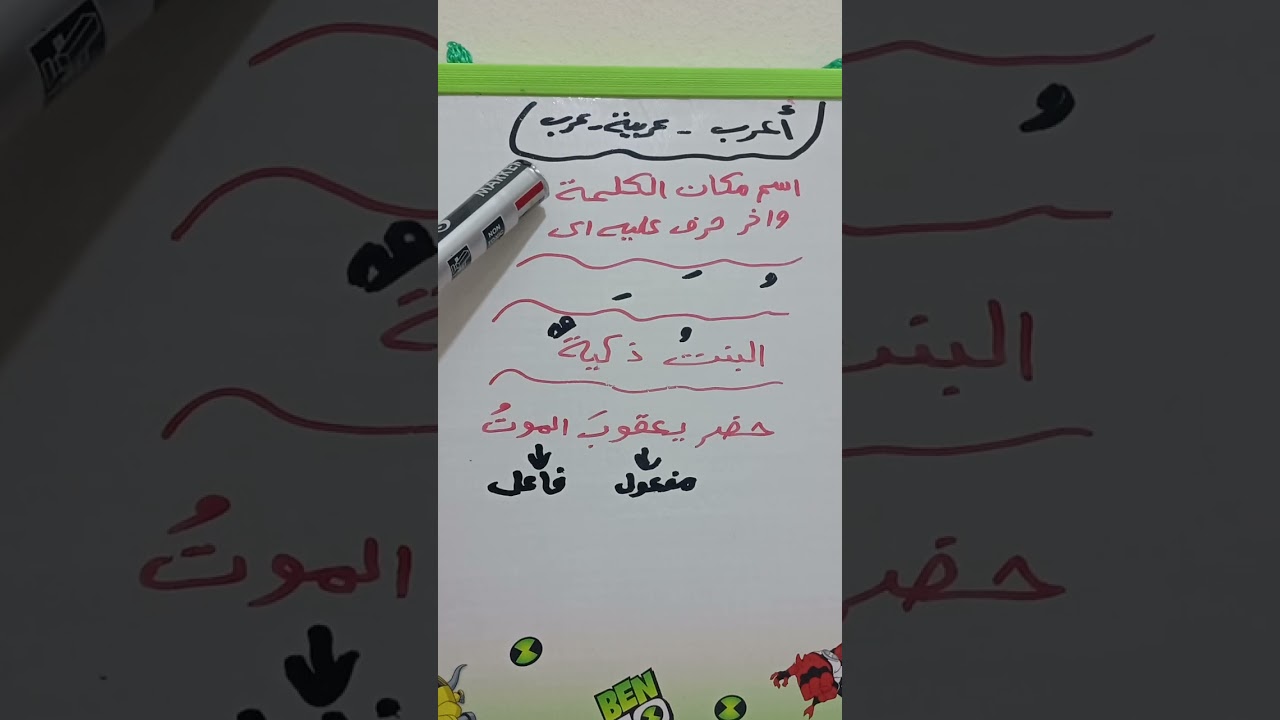 أعرب - عربية - عرب
اسم مكان الكلمة
واخر حرف عليه اى
ُ َ ِ
البنتُ ذكيةٌ
حضر يعقوبَ الموتُ
مفعول فاعل
MARKER
NON
BEN
10